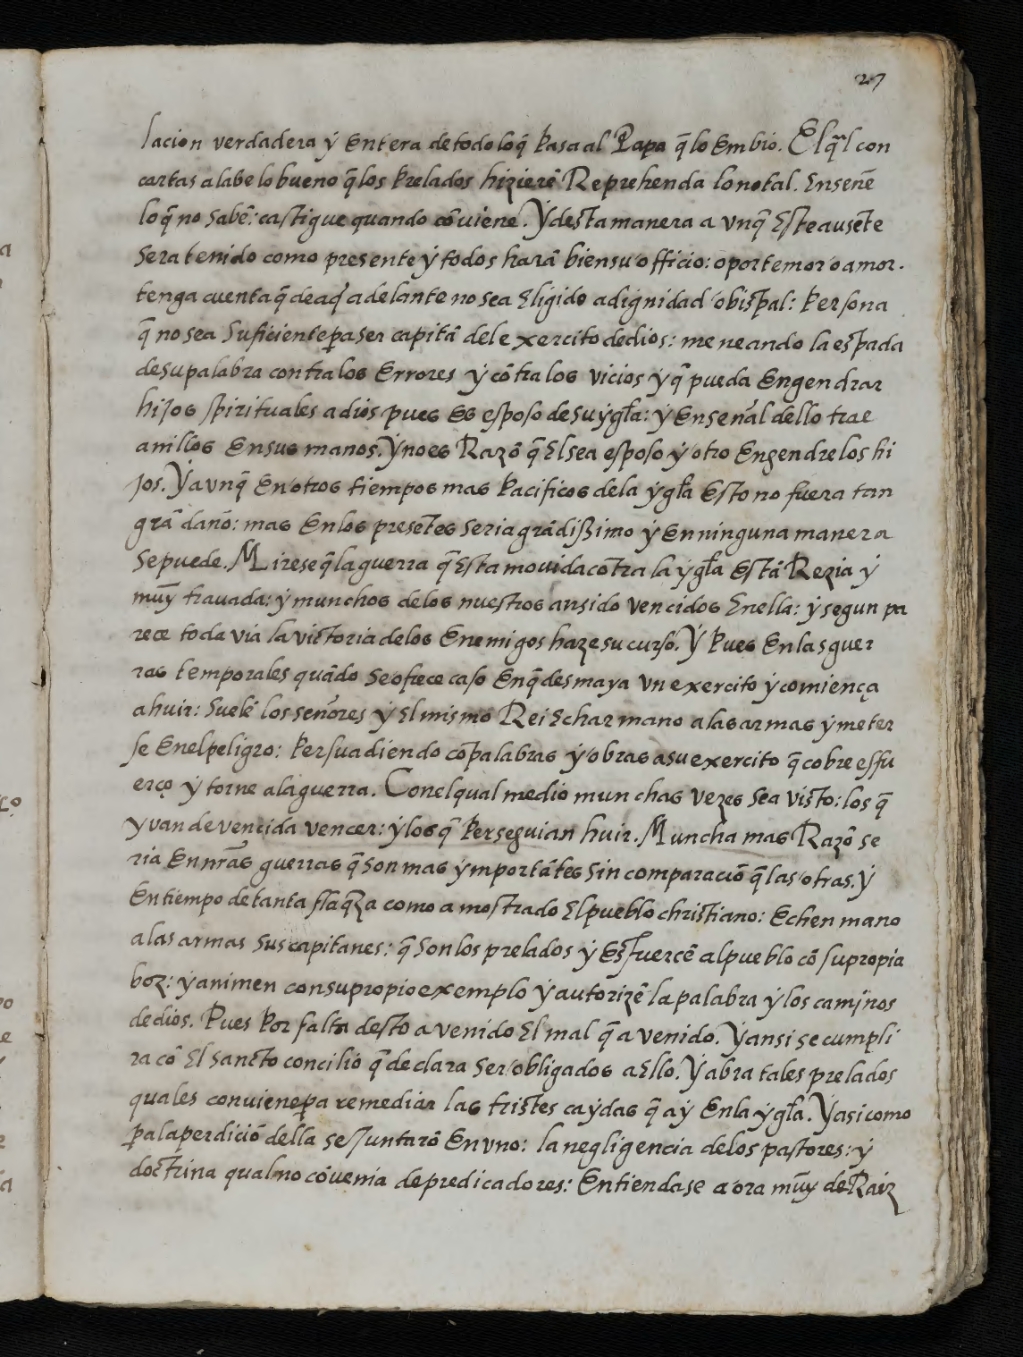 27
lacion verdadera ẏ entera de todo lo q̃ pasa al Papa q̃ lo embio. El q̃l con
cartas alabe lo bueno q̃ los prelados hizierẽ Reprehenda lo no tal. Enseñe
lo q̃ no sabẽ: castigue quando cõuiene. Ẏ desta manera a vnq̃ este ausẽte
sera tenido como presente ẏ todos harã bien su officio: o por temor o amor.
tenga cuenta q̃ de aq̃ adelante no sea eligido a dignidad obispal: persona
q̃ no sea suficiente pa ser capitã del exercito de dios: meneando la espada
de su palabra contra los errores ẏ cõtra los vicios ẏ q̃ pueda engendrar
hijos spirituales a dios pues es esposo de su ẏgl̃a: ẏ en señal dello trae
anillos en sus manos. Ẏ no es Razõ q̃ el sea esposo ẏ otro engendre los hi
jos. Ẏ avnq̃ en otros tiempos mas pacificos de la ẏgl̃a esto no fuera tan
grã daño: mas en los presẽtes seria grãdissimo ẏ en ninguna manera
se puede. Mirese q̃ la guerra q̃ esta movida cõtra la ẏgl̃a estã Rezia ẏ
muy travada: ẏ munchos de los nuestros an sido vencidos en ella: ẏ segun pa
rece toda via la victoria de los enemigos haze su curso. Ẏ pues en las guer
ras temporales quãdo se ofrece caso en q̃ desmaya vn exercito ẏ comiença
a huir: suelẽ los señores ẏ el mismo Rei echar mano a las armas ẏ meter
se en el peligro: persuadiendo cõ palabras ẏ obras a su exercito q̃ cobre esfu
erço ẏ torne a la guerra. Con el qual medio munchas vezes se a visto: los q̃
yvan de vencida vencer: ẏ los q̃ perseguian huir. Muncha mas Razõ se
ria en nr̃as guerras q̃ son mas ẏmportãtes sin comparaciõ q̃ las otras. Ẏ
en tiempo de tanta flaq̃za como a mostrado el pueblo christiano: echen mano
a las armas sus capitanes: q̃ son los prelados ẏ esfuercẽ al pueblo cõ su propia
boz: ẏ animen con su propio exemplo ẏ autorizẽ la palabra ẏ los caminos
de dios. Pues por falta desto a venido el mal q̃ a venido. Ẏ ansi se cumpli
ra cõ el sancto concilio q̃ declara ser obligados a ello. Ẏ abra tales prelados
quales conviene pa remediar las tristes caẏdas q̃ aẏ en la ẏgl̃a. Ẏ asi como
pa la perdiciõ della se juntarõ en vno: la negligencia de los pastores: ẏ
doctrina qual no cõvenia de predicadores: Entiendase aora muy de Raiz